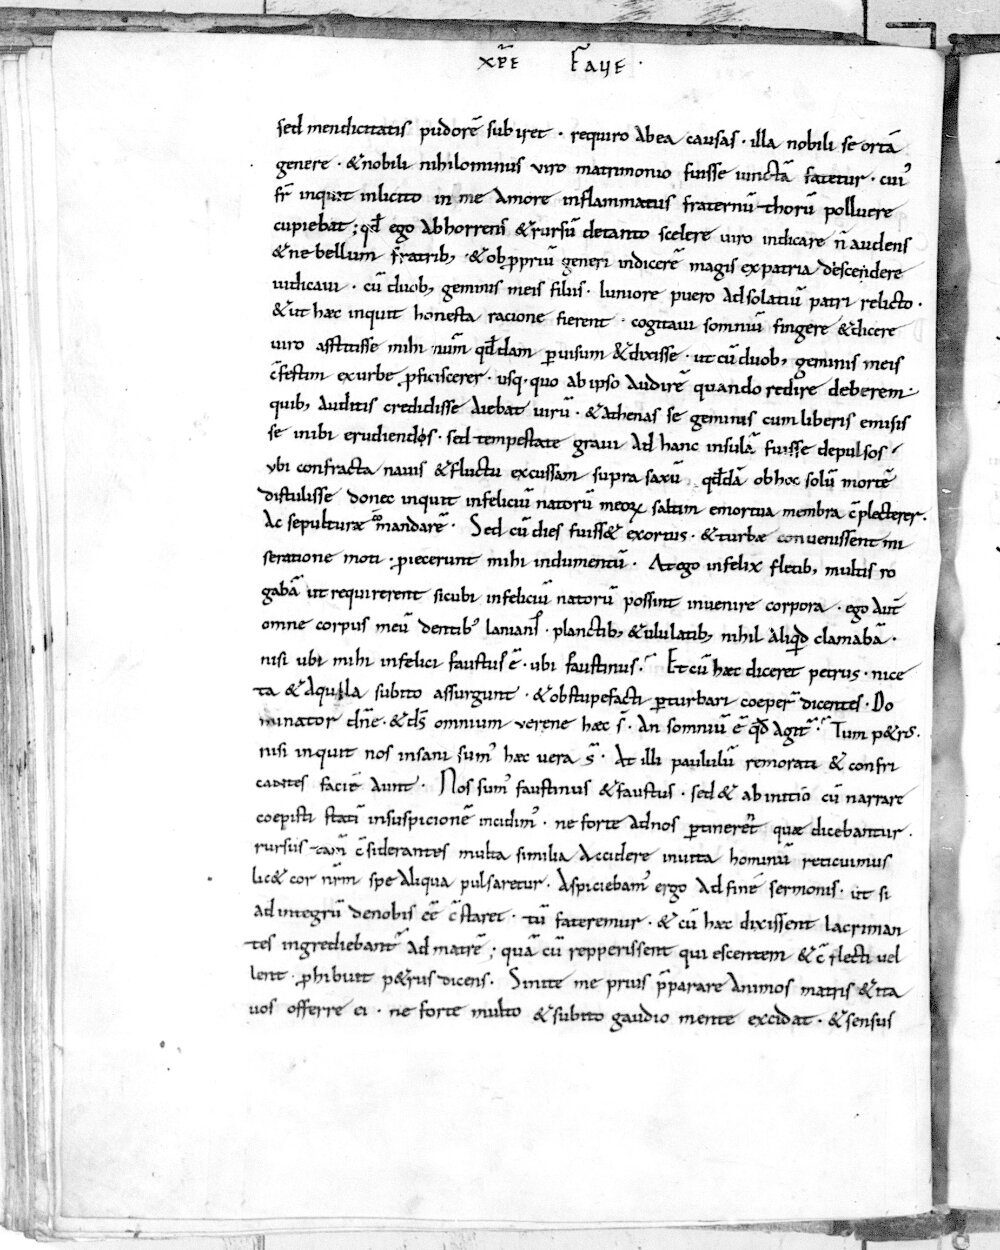 xp̄e FAVE ·
sed mendicitatis pudorē subiret · requiro ab ea causas · illa nobili se ortā
genere · & nobili nihilominus viro matrimonio fuisse iunctā fatetur · cui᾽
fr̄ inquit inlicito in me amore inflammatus fraternū thorū polluere
cupiebat ; qđ ego abhorrens & rursū detanto scelere viro indicare n̄ audens
& ne bellum fratrib; · & ob ꝓpriū generi indicerē magis ex patria descendere
iudicavi · cū duob; geminis meis filiis · Iuniore puero ad solatiū patri relicto ·
& ut haec inquit honesta racione fierent · cogitavi somniū fingere & dicere
viro asstitisse mihi num̄ qđdam ꝑ visum & dixisse · ut cū duob; geminis meis
c̄festim ex urbe ꝓficiscerer · usq· quo ab ipso audirē quando redire deberem ·
quib; auditis credidisse aiebat virū · & athenas se geminis cum liberis emisis
se inibi erudiendos · sed tempestate gravi ad hanc insulā fuisse depulsos ·
ubi confracta navis & fluctu excussam supra saxū qđdā ob hoc solū mortē
distulisse donec inquit infeliciū natorū meoꝝ saltim emortua membra c̄plecterer ·
ac sepulturae com̄andarē · Sed cū dies fuiss& exortus · & turbae convenissent mi
seratione moti · piecerunt mihi indumentū · At ego infelix fletib; multis ro
gabā ut requirerent sicubi infeliciū natorū possint invenire corpora · ego aut̄
omne corpus meū dentib᾽ lanians · planctib; & ululatib; nihil aliqđ clamabā ·
nisi ubi mihi infelici faustus ē · ubi faustinus · Et cū haec diceret petrus · nice
ta & Aquila subito assurgunt · & obstupefacti ꝑturbari coeper̄ dicentes · Do
minator dn̄e · & ds̄ omnium verene haec s̄ · An somniū ē qđ agit᷑ · Tum p&rs̄ ·
nisi inquit nos insani sum᾽ haec vera s̄ · At illi paululū remorati & confri
cantes faciē aiunt · Nos sum᾽ faustinus & faustus · sed & ab initio cū narrare
coepisti statī in suspicionē incidim᾽ · ne forte ad nos ꝑtinerēt quae dicebantur ·
rursus tam̄ c̄siderantes multa similia accidere in vita hominū reticuimus
lic& cor nr̄m spe aliqua pulsaretur · Aspiciebam᾽ ergo ad finē sermonis · ut si
ad integrū de nobis eē c̄staret · tū fateremur · & cū haec dixissent lacriman
tes ingrediebant᷑ ad matrē ; quā cū repperissent qui escentem & c̄plecti vel
lent · ꝓhibuit p&rus dicens · Sinite me prius p̄parare animos matris & ita
vos offerre ei · ne forte multo & subito gaudio mente excidat · & sensus